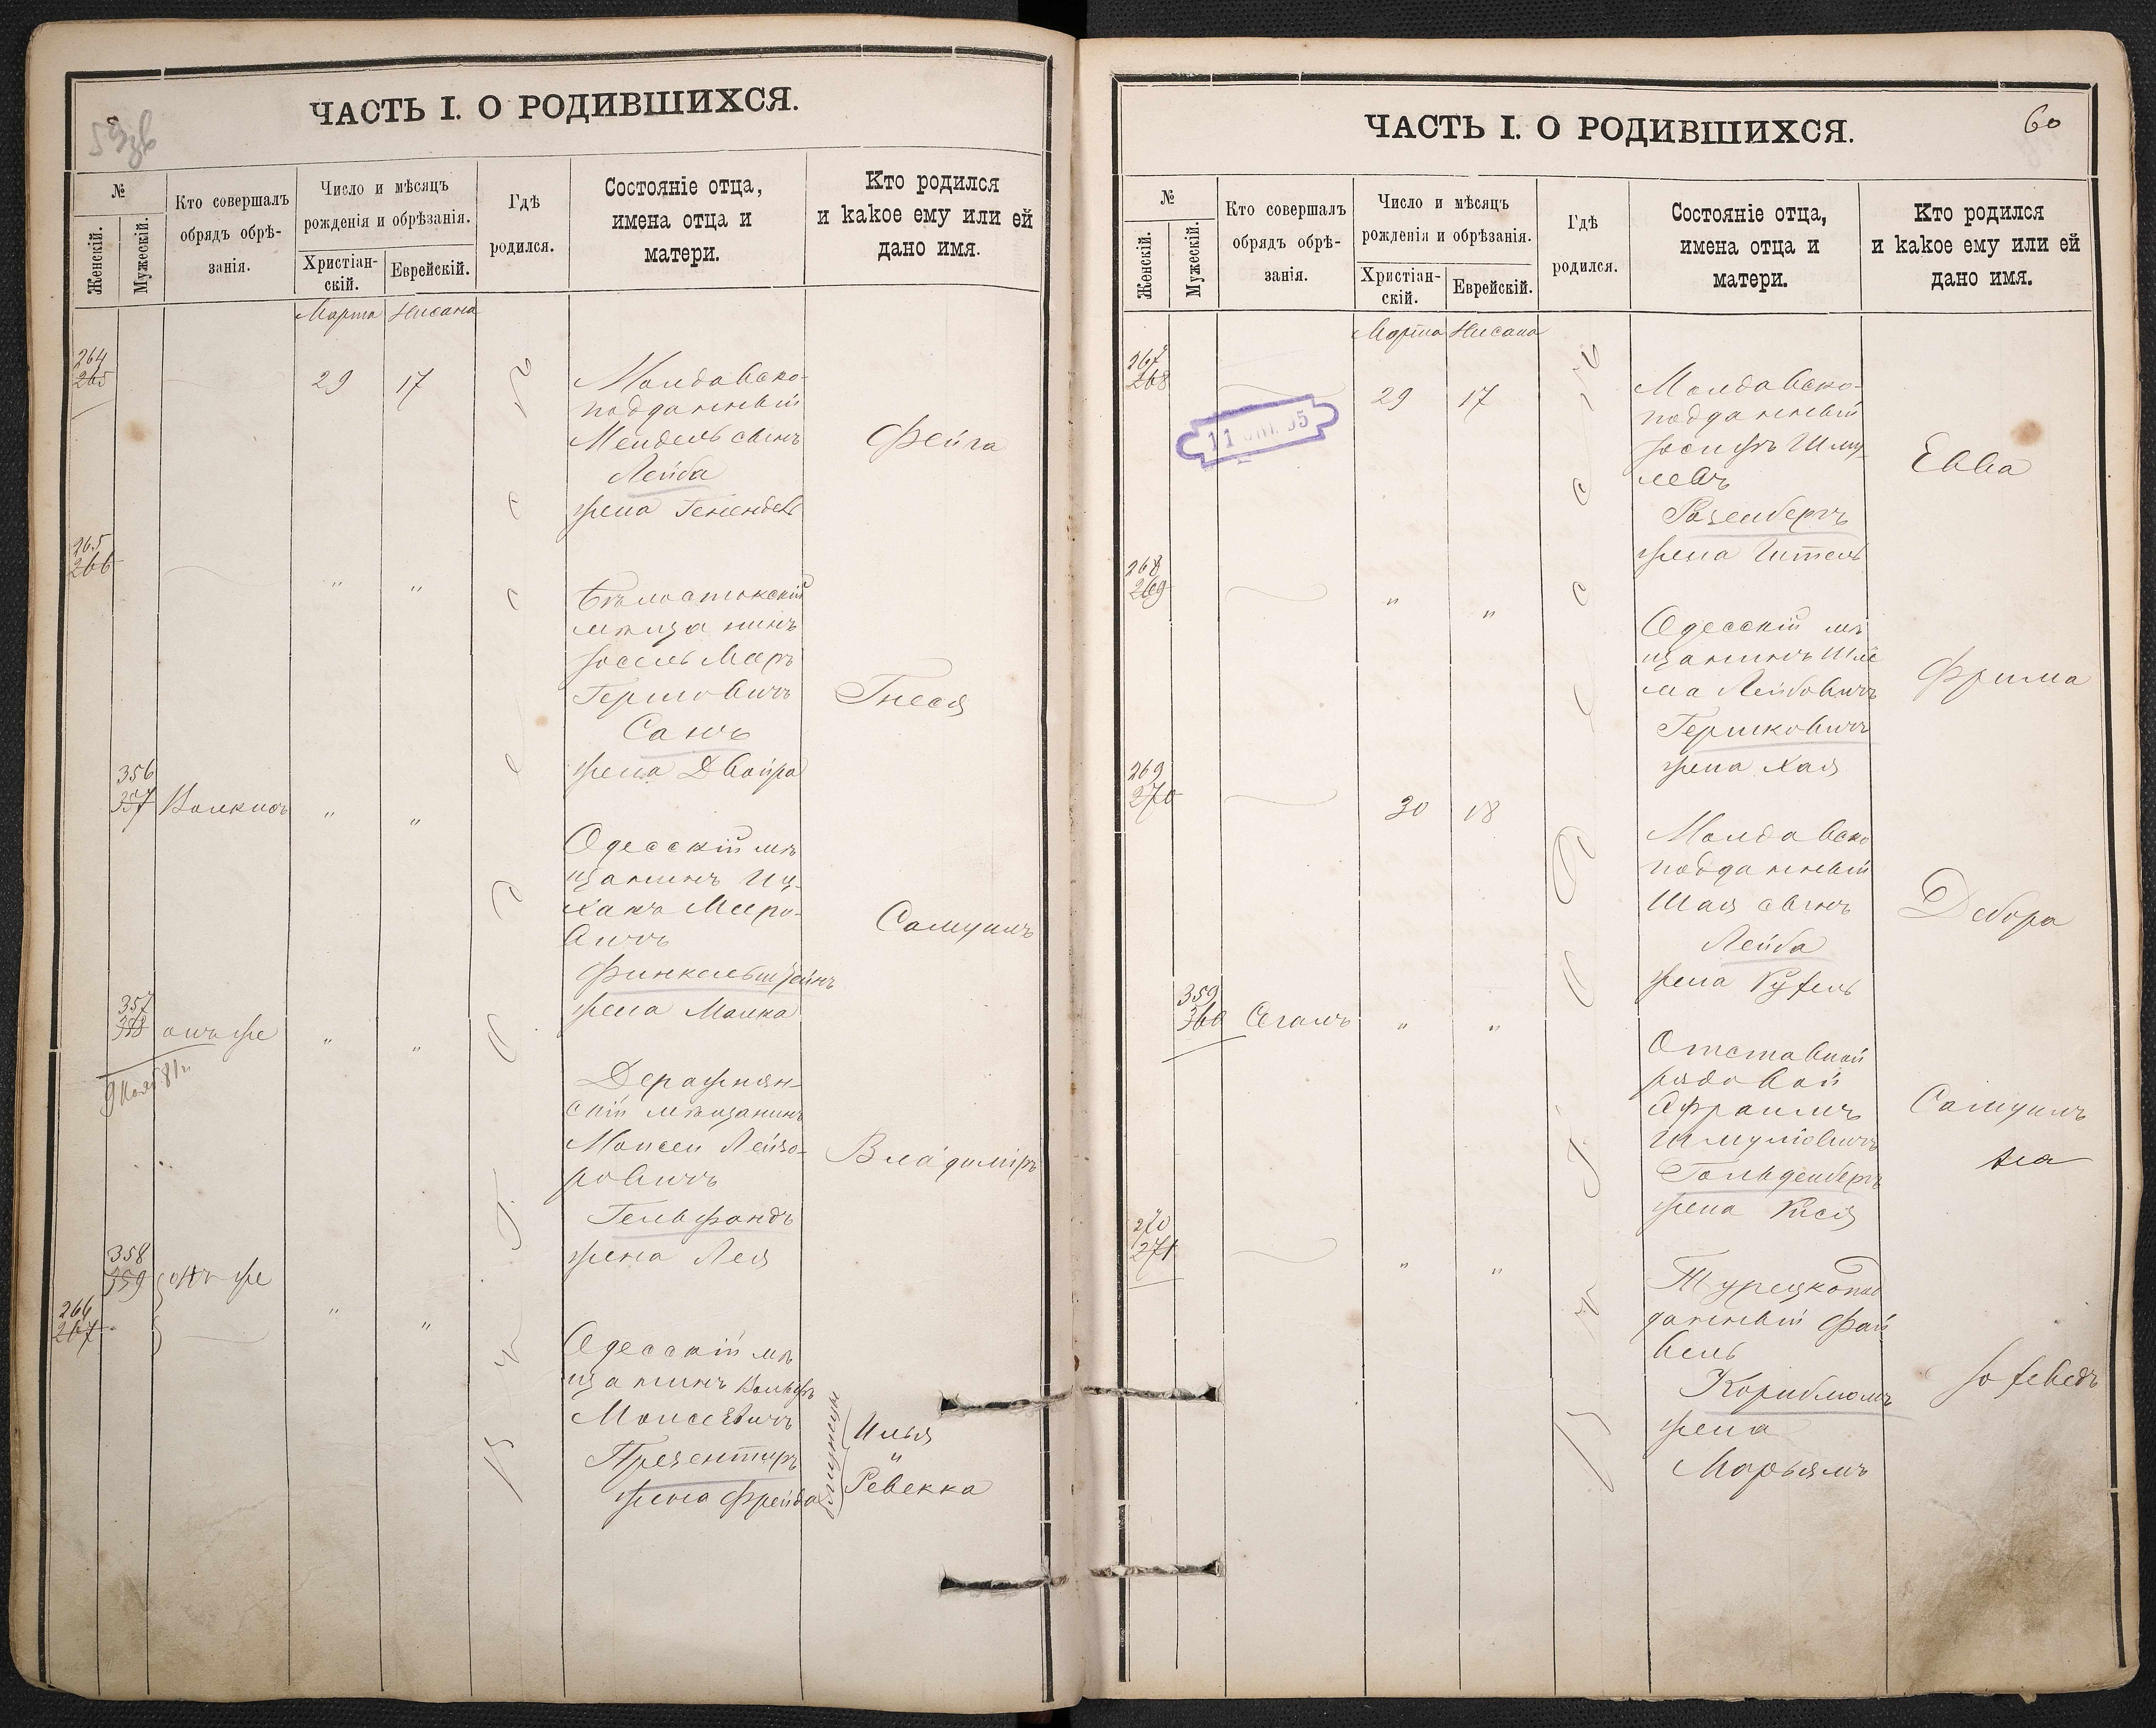 ЧАСТЬ I. О РОДИВШИХСЯ.
№
Женскій.
Мужескій.
Кто совершалъ
обрядъ обрѣ-
занія.
Число и мѣсяцъ
рожденія и обрѣзанія.
Христіан-
скій.
Еврейскій.
Гдѣ
родился.
Состояніе отца,
имена отца и
матери.
Кто родился
и какое ему или ей
дано имя.
Марта Нисана
264
265
29 17
Молдавско-
подданный
Мендель сынъ
Лейба
жена Генендель
Фейга
265
266
" "
Бѣлостокскій
мѣщанинъ
Іосель Маръ
Гершовичъ
Санъ
жена Двойра
Гнеся
356
357
Волкинъ
" "
Одесскій мѣ
щанинъ Иц-
хакъ Мееро-
вичъ
Финкельштейнъ
жена Манка
Самуилъ
357
358
онъ же
" "
Деражнян-
скій мѣщанинъ
Моисей Лейзо-
ровичъ
Гельфандъ
жена Лея
Владиміръ
358
359
онъ же
266
267
" "
Одесскій мѣ
щанинъ Вольфъ
Моисеевичъ
Презентиръ
жена Фрейда
близнецы
Илья
"
Ревекка
ЧАСТЬ I. О РОДИВШИХСЯ.
60
№
Женскій.
Мужескій.
Кто совершалъ
обрядъ обрѣ-
занія.
Число и мѣсяцъ
рожденія и обрѣзанія.
Христіан-
скій.
Еврейскій.
Гдѣ
родился.
Состояніе отца,
имена отца и
матери.
Кто родился
и какое ему или ей
дано имя.
Марта Нисана
267
268
29 17
Молдавско-
подданный
Іосифъ Шму
левъ
Розенбергъ
жена Ителъ
Евва
268
269
" "
Одесскій мѣ
щанинъ Шлё
ма Лейбовичъ
Гершковичъ
жена Хая
Фрима
269
270
30 18
Молдавско
подданный
Шая сынъ
Лейба
жена Рухель
Дебора
359
360
Сегалъ
" "
Отставной
рядовой
Эфраимъ
Шмуліовичъ
Гольденбергъ
жена Кися
Самуилъ
270
271
" "
Турецкопод
данный Фай
вель
Корнблюмъ
жена
Марьямъ
Іохеведъ